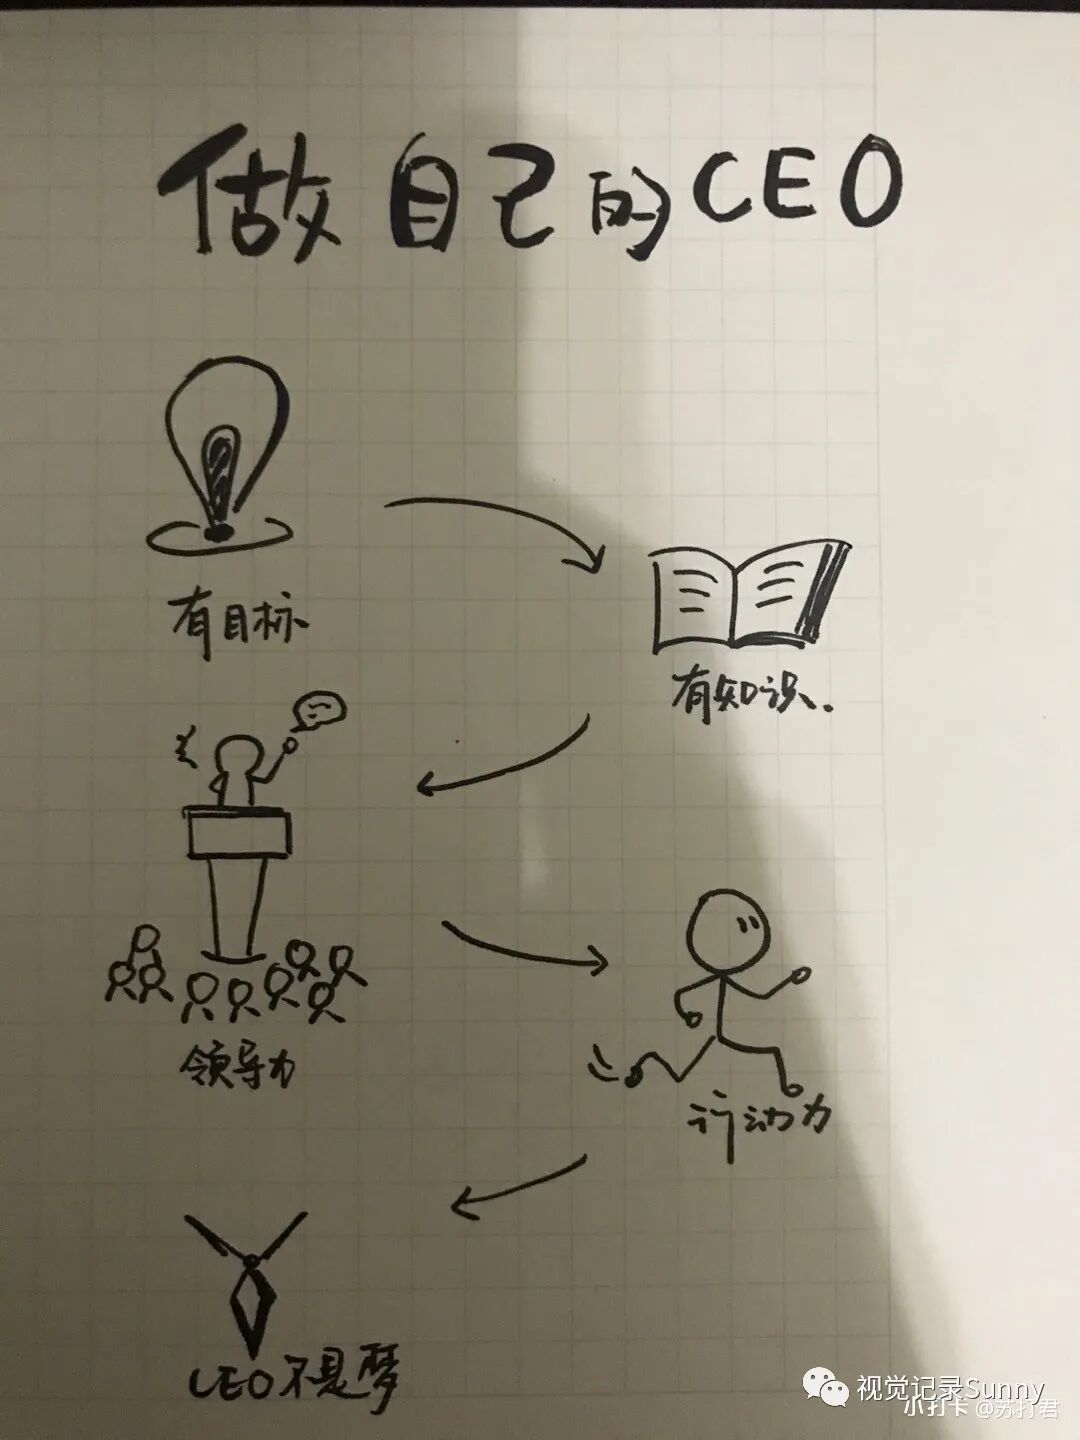 做自己的CEO
有目标
有知识.
领导力
行动力
CEO不是梦
视觉记录Sunny
小打卡@苏打君